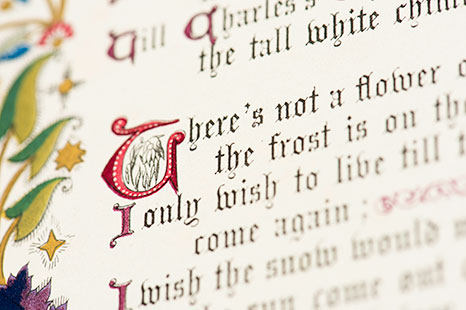 Till Charles's
the tall white chim
There's not a flower o
the frost is on th
I only wish to live till t
come again:
I wish the snow would m
sun come out